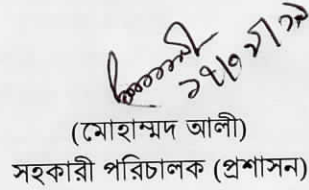 (মোহাম্মদ আলী)
সহকারী পরিচালক (প্রশাসন)